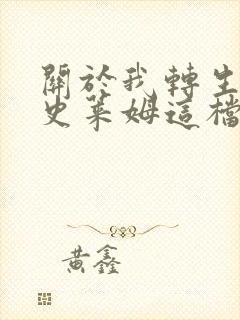 關於我轉生
史萊姆這檔
黃鑫